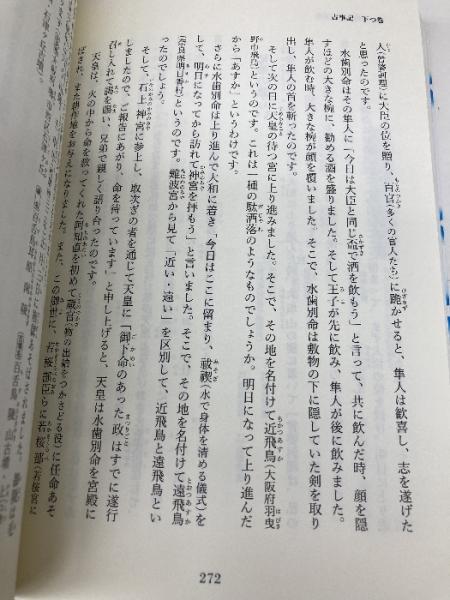 古事記 下つ巻
人(曾婆訶理)に大臣の位を贈り、百官(多くの官人たち)に跪かせると、隼人は歓喜し、志を遂げた
と思ったのです。
水歯別命はその隼人に「今日は大臣と同じ盃で酒を飲もう」と言って、共に飲んだ時、顔を隠
すほどの大きな椀に、勧める酒を盛りました。そして王子が先に飲み、隼人が後に飲みました。
隼人が飲む時、大きな椀が顔を覆いました。そこで、水歯別命は敷物の下に隠していた剣を取り
出し、隼人の首を斬ったのです。
そして次の日に天皇の待つ宮に上り進みました。そこで、その地を名付けて近飛鳥(大阪府羽曳
野市飛鳥)というのです。これは一種の駄洒落のようなものでしょうか。明日になって上り進んだ
から「あすか」というわけです。
さらに水歯別命は上り進んで大和に着き「今日はここに留まり、祓禊(水で身体を清める儀式)を
して、明日になってから訪れて神宮を拝もう」と言いました。そこで、その地を名付けて遠飛鳥
(奈良県明日香村)というのです。難波宮から見て「近い・遠い」を区別して、近飛鳥と遠飛鳥とい
ったのでしょう。
そして、石上神宮に参上し、取次ぎの者を通じて天皇に「御下命のあった政はすでに遂行
しましたので、ご報告にあがり、命を待っています」と申し上げると、天皇は水歯別命を宮殿に
召し入れて謁を賜い、兄弟で親しく語り合ったのです。
天皇は、火の中から命を救ってくれた阿知直を初めて蔵官(物の出納をつかさどる役)に任命あそ
ばされ、また耕作地をお与えになりました。また、この御世に、若桜部臣らに若桜部(若桜宮に
272